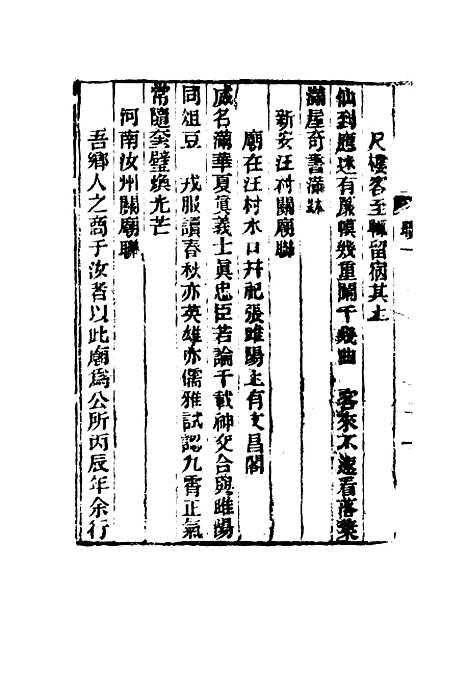 尺樓客至輒留宿其上
仙到應迷有簾幙幾重闌干幾曲　客來不速看落葉
滿屋奇書滿牀
新安汪村關廟聯
廟在汪村水口幷祀張睢陽上有文昌閣
威名滿華夏眞義士眞忠臣若論千載神交合與睢陽
同俎豆　戎服讀春秋亦英雄亦儒雅試認九霄正氣
常隨奎璧煥光芒
河南汝州關廟聯
吾鄉人之商于汝者以此廟爲公所丙辰年余行